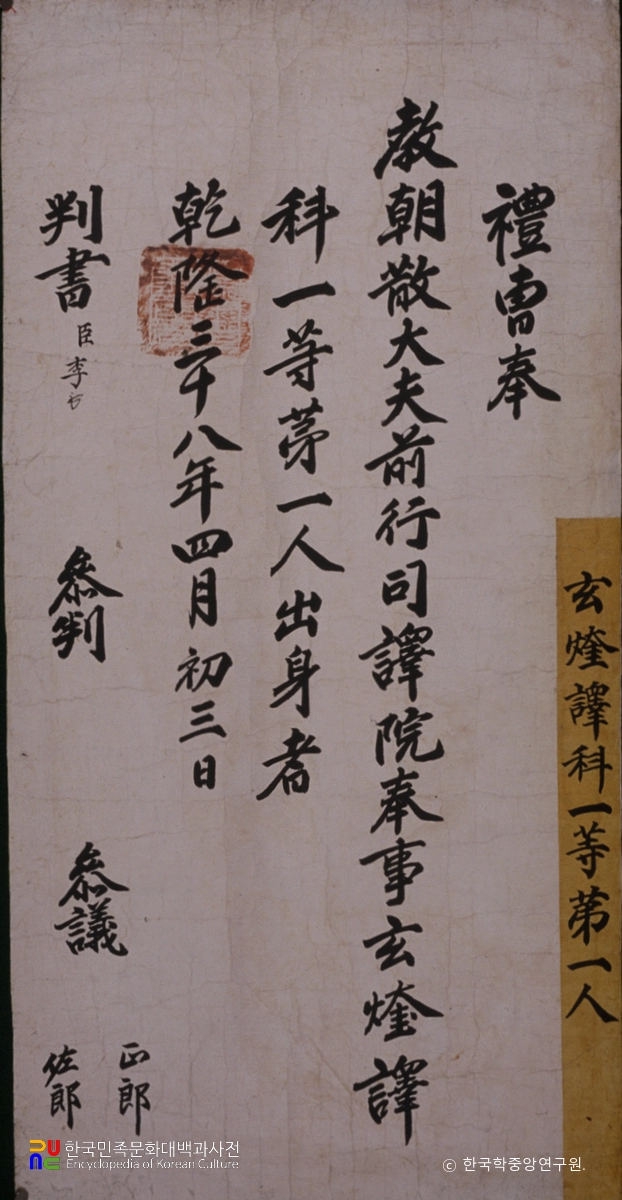 玄煃譯科一等第一人
禮曹奉
教朝散大夫前行司譯院奉事玄煃譯
科一等第一人出身者
乾隆三十八年四月初三日
判書臣李
參判
參議
正郎
佐郎
한국민족문화대백과사전
Encyclopedia of Korean Culture
© 한국학중앙연구원.